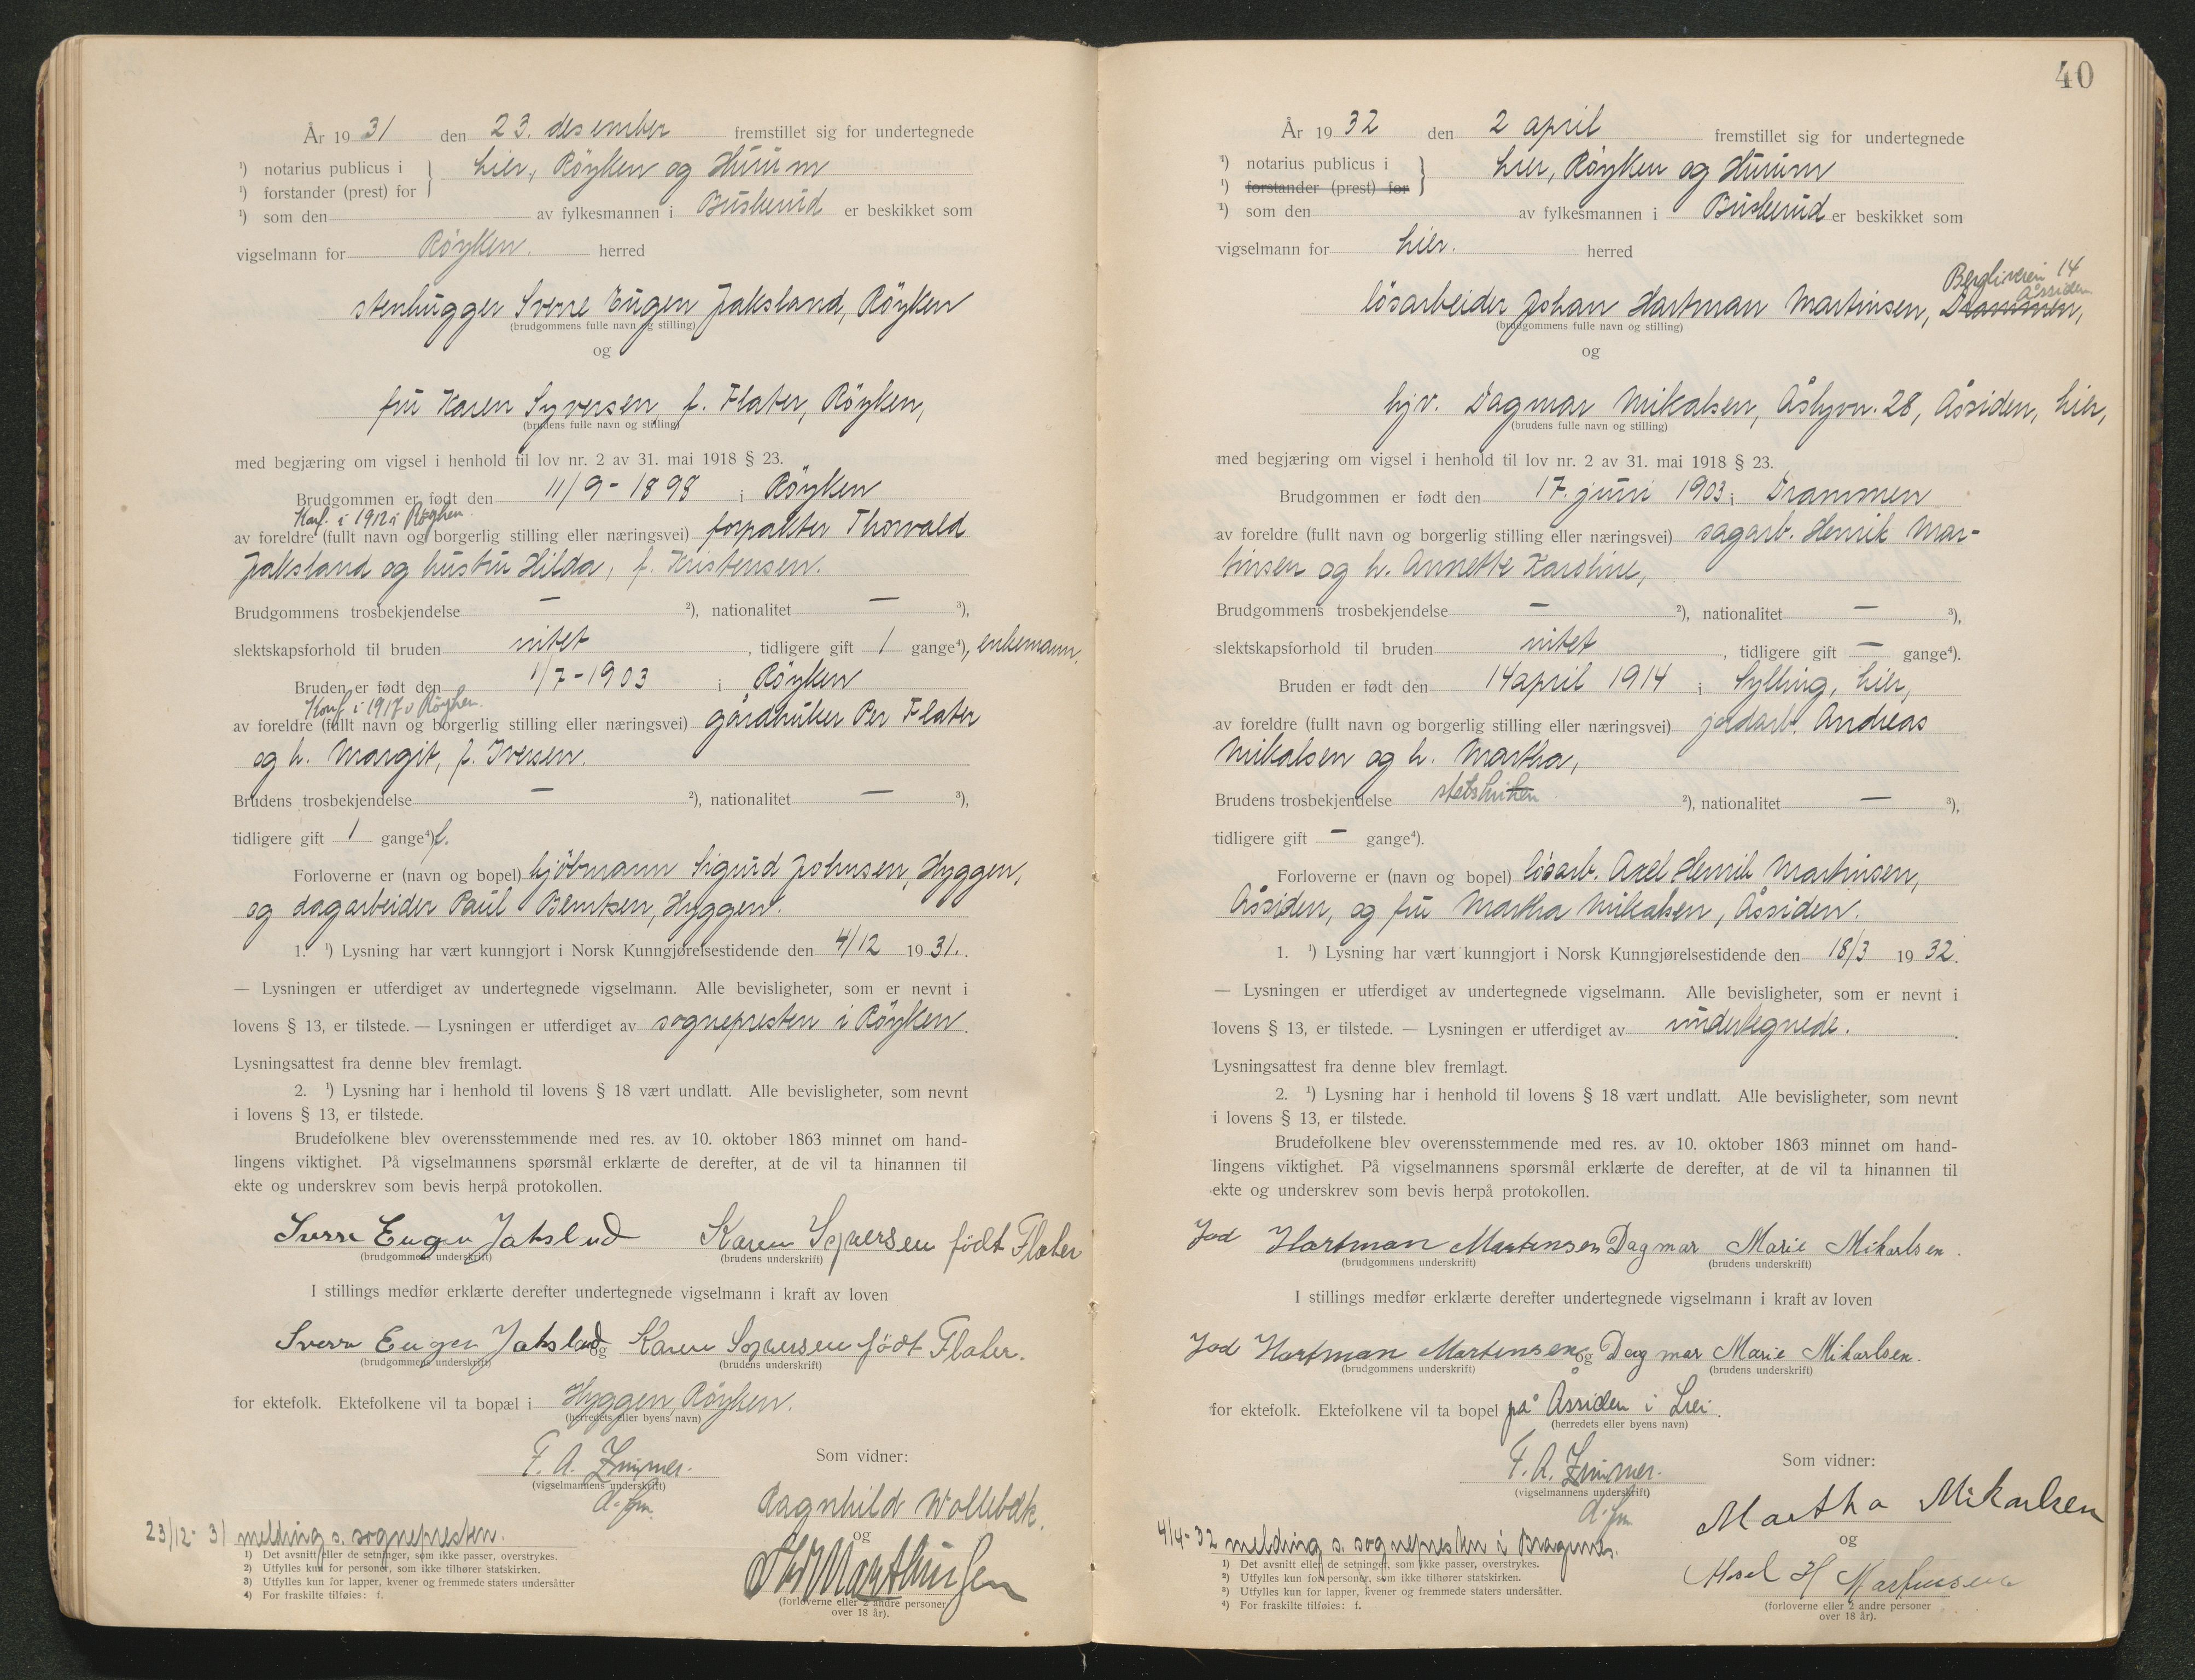 År 1931 den 23. desember fremstillet sig for undertegnede
¹) notarius publicus i } Lier, Röyken og Hurum
¹) forstander (prest) for
¹) som den av fylkesmannen i Buskerud er beskikket som
vigselmann for Röyken. herred
stenhugger Sverre Eugen Jaksland, Röyken
(brudgommens fulle navn og stilling)
og
fru Karen Syversen, f. Flater, Röyken,
(brudens fulle navn og stilling)
med begjæring om vigsel i henhold til lov nr. 2 av 31. mai 1918 § 23.
Brudgommen er født den 11/9-1898 i Röyken
Konf. i 1912 i Röyken.
av foreldre (fullt navn og borgerlig stilling eller næringsvei) forpakter Thorvald
Jaksland og hustru Hilda, f. Kristensen.
Brudgommens trosbekjendelse — ²), nationalitet — ³),
slektskapsforhold til bruden intet , tidligere gift 1 gange⁴), enkemann.
Bruden er født den 1/7-1903 i Röyken
Konf. i 1917 i Röyken.
av foreldre (fullt navn og borgerlig stilling eller næringsvei) gårdbruker Per Flater
og h. Margit, f. Iversen.
Brudens trosbekjendelse — ²), nationalitet — ³),
tidligere gift 1 gange⁴) f.
Forloverne er (navn og bopel) kjöbmann Sigurd Johnsen, Hyggen,
og dagarbeider Paul Berntsen, Hyggen.
1. ¹) Lysning har vært kunngjort i Norsk Kunngjørelsestidende den 4/12 1931.
— Lysningen er utferdiget av undertegnede vigselmann. Alle bevisligheter, som er nevnt i
lovens § 13, er tilstede. — Lysningen er utferdiget av sognepresten i Röyken.
Lysningsattest fra denne blev fremlagt.
2. ¹) Lysning har i henhold til lovens § 18 vært undlatt. Alle bevisligheter, som nevnt
i lovens § 13, er tilstede.
Brudefolkene blev overensstemmende med res. av 10. oktober 1863 minnet om hand-
lingens viktighet. På vigselmannens spørsmål erklærte de derefter, at de vil ta hinannen til
ekte og underskrev som bevis herpå protokollen.
Sverre Eugen Jaksland Karen Syversen født Flater
(brudgommens underskrift) (brudens underskrift)
I stillings medfør erklærte derefter undertegnede vigselmann i kraft av loven
Sverre Eugen Jaksland og Karen Syversen født Flater.
(brudgommens underskrift) (brudens underskrift)
for ektefolk. Ektefolkene vil ta bopæl i Hyggen, Röyken.
(herredets eller byens navn)
F. A. Zimmer. Som vidner:
(vigselmannens underskrift)
d. fm. Ragnhild Wollebæk.
og
23/12-31 melding s. sognepresten.
1) Det avsnitt eller de setninger, som ikke passer, overstrykes.
2) Utfylles kun for personer, som ikke tilhører statskirken.
3) Utfylles kun for lapper, kvener og fremmede staters undersåtter
4) For fraskilte tilføies: f.
(forloverne eller 2 andre personer
over 18 år).
40
År 1932 den 2 april fremstillet sig for undertegnede
¹) notarius publicus i } Lier, Röyken og Hurum
¹) forstander (prest) for
¹) som den av fylkesmannen i Buskerud er beskikket som
vigselmann for Lier. herred
Bergliveien 14
Åssiden
lösarbeider Johan Hartman Martinsen, Drammen,
(brudgommens fulle navn og stilling)
og
hjv. Dagmar Mikalsen, Åslyvn. 28, Åssiden, Lier,
(brudens fulle navn og stilling)
med begjæring om vigsel i henhold til lov nr. 2 av 31. mai 1918 § 23.
Brudgommen er født den 17. juni 1903 i Drammen
av foreldre (fullt navn og borgerlig stilling eller næringsvei) sagarb. Henrik Mar-
tinsen og h. Annette Karoline,
Brudgommens trosbekjendelse — ²), nationalitet — ³),
slektskapsforhold til bruden intet , tidligere gift — gange⁴).
Bruden er født den 14 april 1914 i Sylling, Lier,
av foreldre (fullt navn og borgerlig stilling eller næringsvei) jordarb. Andreas
Mikalsen og h. Martha,
Brudens trosbekjendelse ²), nationalitet — ³),
tidligere gift — gange⁴).
Forloverne er (navn og bopel) lösarb. Axel Henrik Martinsen,
Åssiden, og fru Martha Mikalsen, Åssiden.
1. ¹) Lysning har vært kunngjort i Norsk Kunngjørelsestidende den 18/3 1932.
— Lysningen er utferdiget av undertegnede vigselmann. Alle bevisligheter, som er nevnt i
lovens § 13, er tilstede. — Lysningen er utferdiget av undertegnede.
Lysningsattest fra denne blev fremlagt.
2. ¹) Lysning har i henhold til lovens § 18 vært undlatt. Alle bevisligheter, som nevnt
i lovens § 13, er tilstede.
Brudefolkene blev overensstemmende med res. av 10. oktober 1863 minnet om hand-
lingens viktighet. På vigselmannens spørsmål erklærte de derefter, at de vil ta hinannen til
ekte og underskrev som bevis herpå protokollen.
Hartman Martensen Dagmar Marie Mikarlsen.
(brudgommens underskrift) (brudens underskrift)
I stillings medfør erklærte derefter undertegnede vigselmann i kraft av loven
Hartman Martensen og Dagmar Marie Mikarlsen.
(brudgommens underskrift) (brudens underskrift)
for ektefolk. Ektefolkene vil ta bopel på Åssiden i Lier.
(herredets eller byens navn)
F. A. Zimmer. Som vidner:
(vigselmannens underskrift)
d. fm. Martha Mikarlsen
og
4/4-32 melding s. sognepresten i Bragernes.
Axel H Martinsen
1) Det avsnitt eller de setninger, som ikke passer, overstrykes.
2) Utfylles kun for personer, som ikke tilhører statskirken.
3) Utfylles kun for lapper, kvener og fremmede staters undersåtter.
4) For fraskilte tilføies: f.
(forloverne eller 2 andre personer
over 18 år).